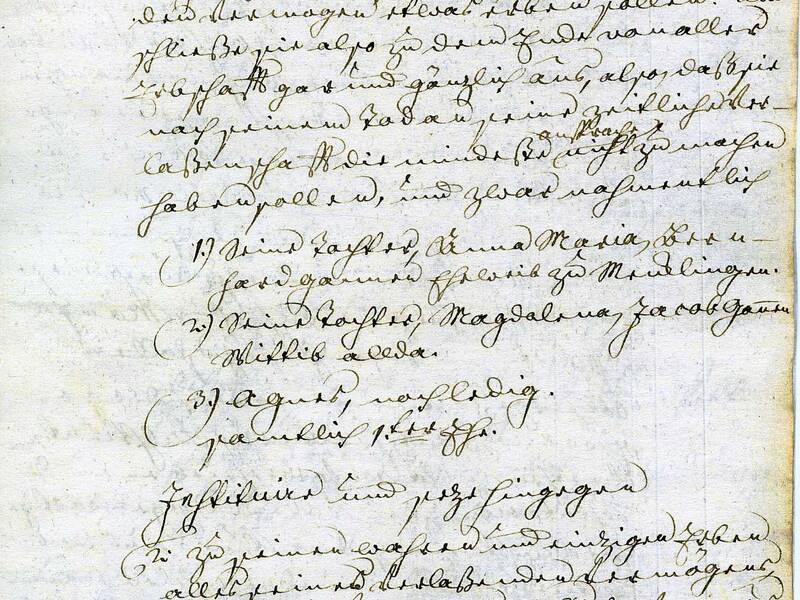 den Vermögen etwas erben sollen.
schließe sie also zu dem Ende von aller
Erbschafft gar und gänzlich aus, also, daß sie
nach seinem Tod an seine zeitliche Ver-
ansprache
laßenschafft die mindeste nicht zu machen
haben sollen, und zwar nahmentlich
1.) Seine Tochter, Anna Maria, Bern-
hard Gannen Eheweib zu Mendlingen.
2.) Seine Tochter, Magdalena, Jacob Gannen
Wittib allda.
3.) Agnes, noch ledig.
samtlich 1.ter Ehe.
Instituire und seze hingegen
2. zu seinen wahren und einzigen Erben
alles seines verlaßenden Vermögens,